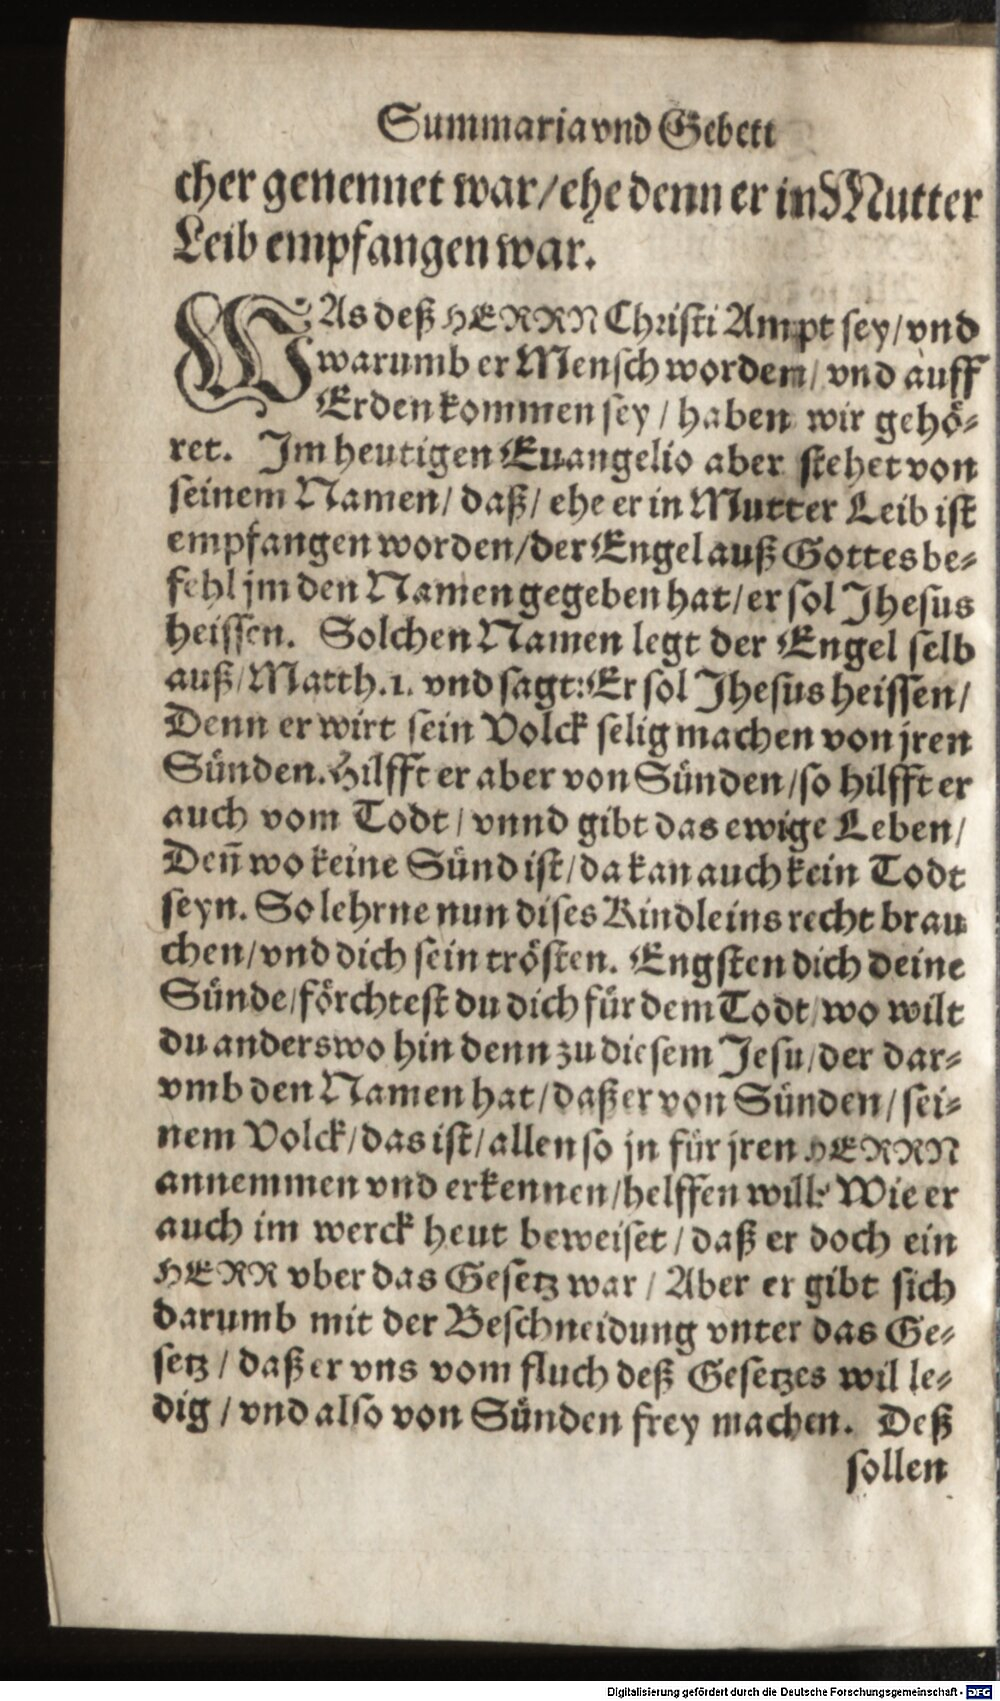 Summaria vnd Gebett
cher genennet war/ ehe denn er in Mutter
Leib empfangen war.
WAs deß HERRN Christi Ampt sey/ vnd
warumb er Mensch worden/ vnd auff
Erden kommen sey/ haben wir gehö-
ret. Im heutigen Euangelio aber stehet von
seinem Namen/ daß/ ehe er in Mutter Leib ist
empfangen worden/ der Engel auß Gottes be-
fehl jm den Namen gegeben hat/ er sol Jhesus
heissen. Solchen Namen legt der Engel selb
auß/ Matth. 1. vnd sagt: Er sol Jhesus heissen/
Denn er wirt sein Volck selig machen von jren
Sünden. Hilfft er aber von Sünden/ so hilfft er
auch vom Todt/ vnnd gibt das ewige Leben/
Deñ wo keine Sünd ist/ da kan auch kein Todt
seyn. So lehrne nun dises Kindleins recht brau
chen/ vnd dich sein trösten. Engsten dich deine
Sünde/ förchtest du dich für dem Todt/ wo wilt
du anderswo hin denn zu diesem Jesu/ der dar-
vmb den Namen hat/ daß er von Sünden/ sei-
nem Volck/ das ist/ allen so jn für jren HERRN
annemmen vnd erkennen/ helffen will: Wie er
auch im werck heut beweiset/ daß er doch ein
HERR vber das Gesetz war/ Aber er gibt sich
darumb mit der Beschneidung vnter das Ge-
setz/ daß er vns vom fluch deß Gesetzes wil le-
dig/ vnd also von Sünden frey machen. Deß
sollen
Digitalisierung gefördert durch die Deutsche Forschungsgemeinschaft - DFG